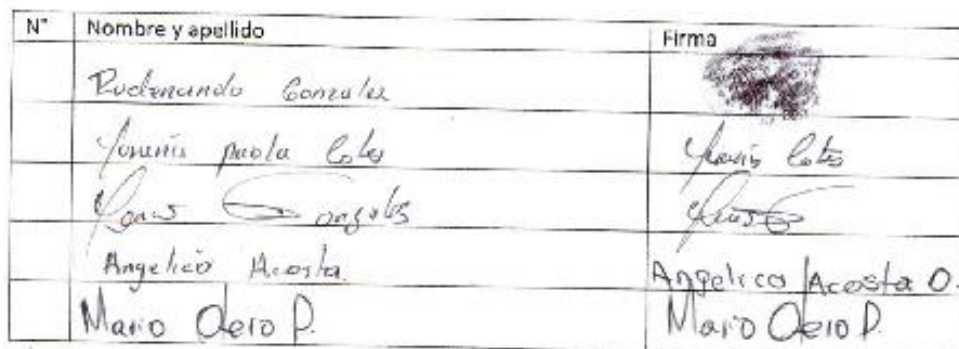 N° Nombre y apellido Firma
Rudenando Gonzalez
Yonenis paola Cotes Yonenis Cotes
Gonzales
Angelica Acosta Angelica Acosta O.
Mario Oero P. Mario Oero P.